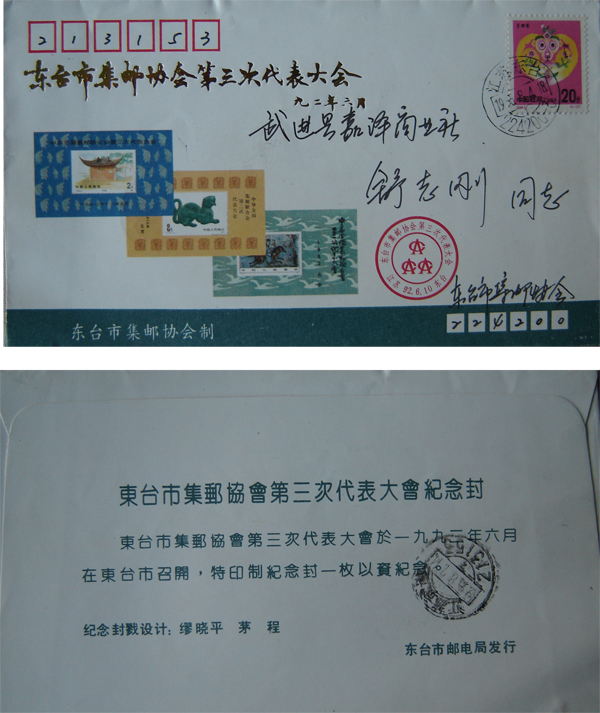 213153
东台市集邮协会第三次代表大会
九二年六月
武进县嘉泽商业社
舒志刚 同志
20分
224200
东台市集邮协会第三次代表大会
江苏 92.6.10 东台
东台市集邮协会
224200
东台市集邮协会制
東台市集郵協會第三次代表大會紀念封
東台市集郵協會第三次代表大會於一九九二年六月
在東台市召開，特印制紀念封一枚以資紀念
纪念封戳设计：缪晓平 茅 程
213153
东台市邮电局发行